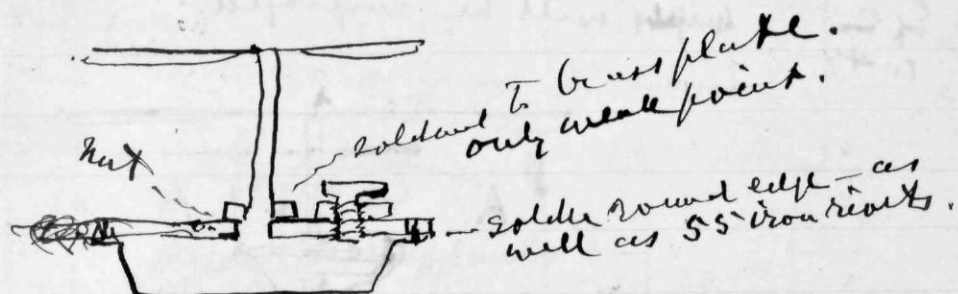 soldered to brass plate.
only weak point.
Nut
solder round edge – as
well as 55 iron rivets.